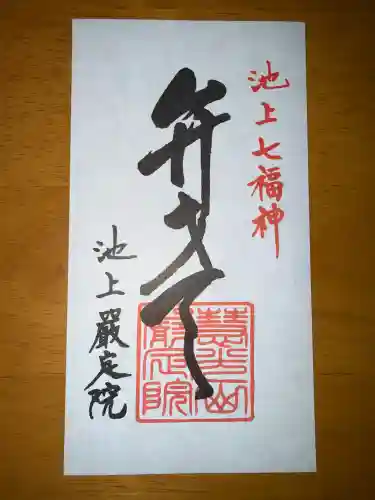 池上七福神
弁才天
池上嚴定院
慧光山
嚴定院